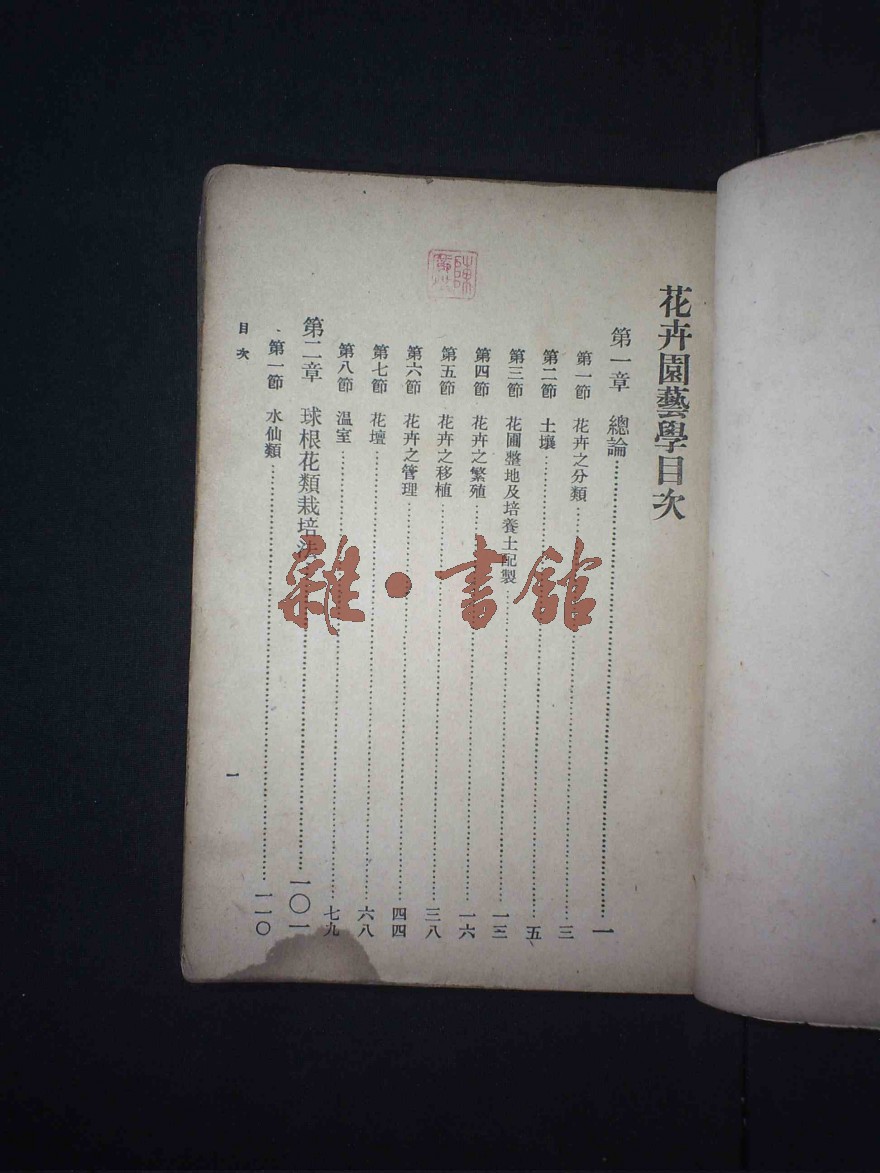 花卉園藝學目次
第一章　總論……一
第一節　花卉之分類……三
第二節　土壤……五
第三節　花圃整地及培養土配製……一三
第四節　花卉之繁殖……一六
第五節　花卉之移植……三八
第六節　花卉之管理……四四
第七節　花壇……六八
第八節　温室……七九
第二章　球根花類栽培法……一〇一
第一節　水仙類……一一〇
目次
一
雜·書館